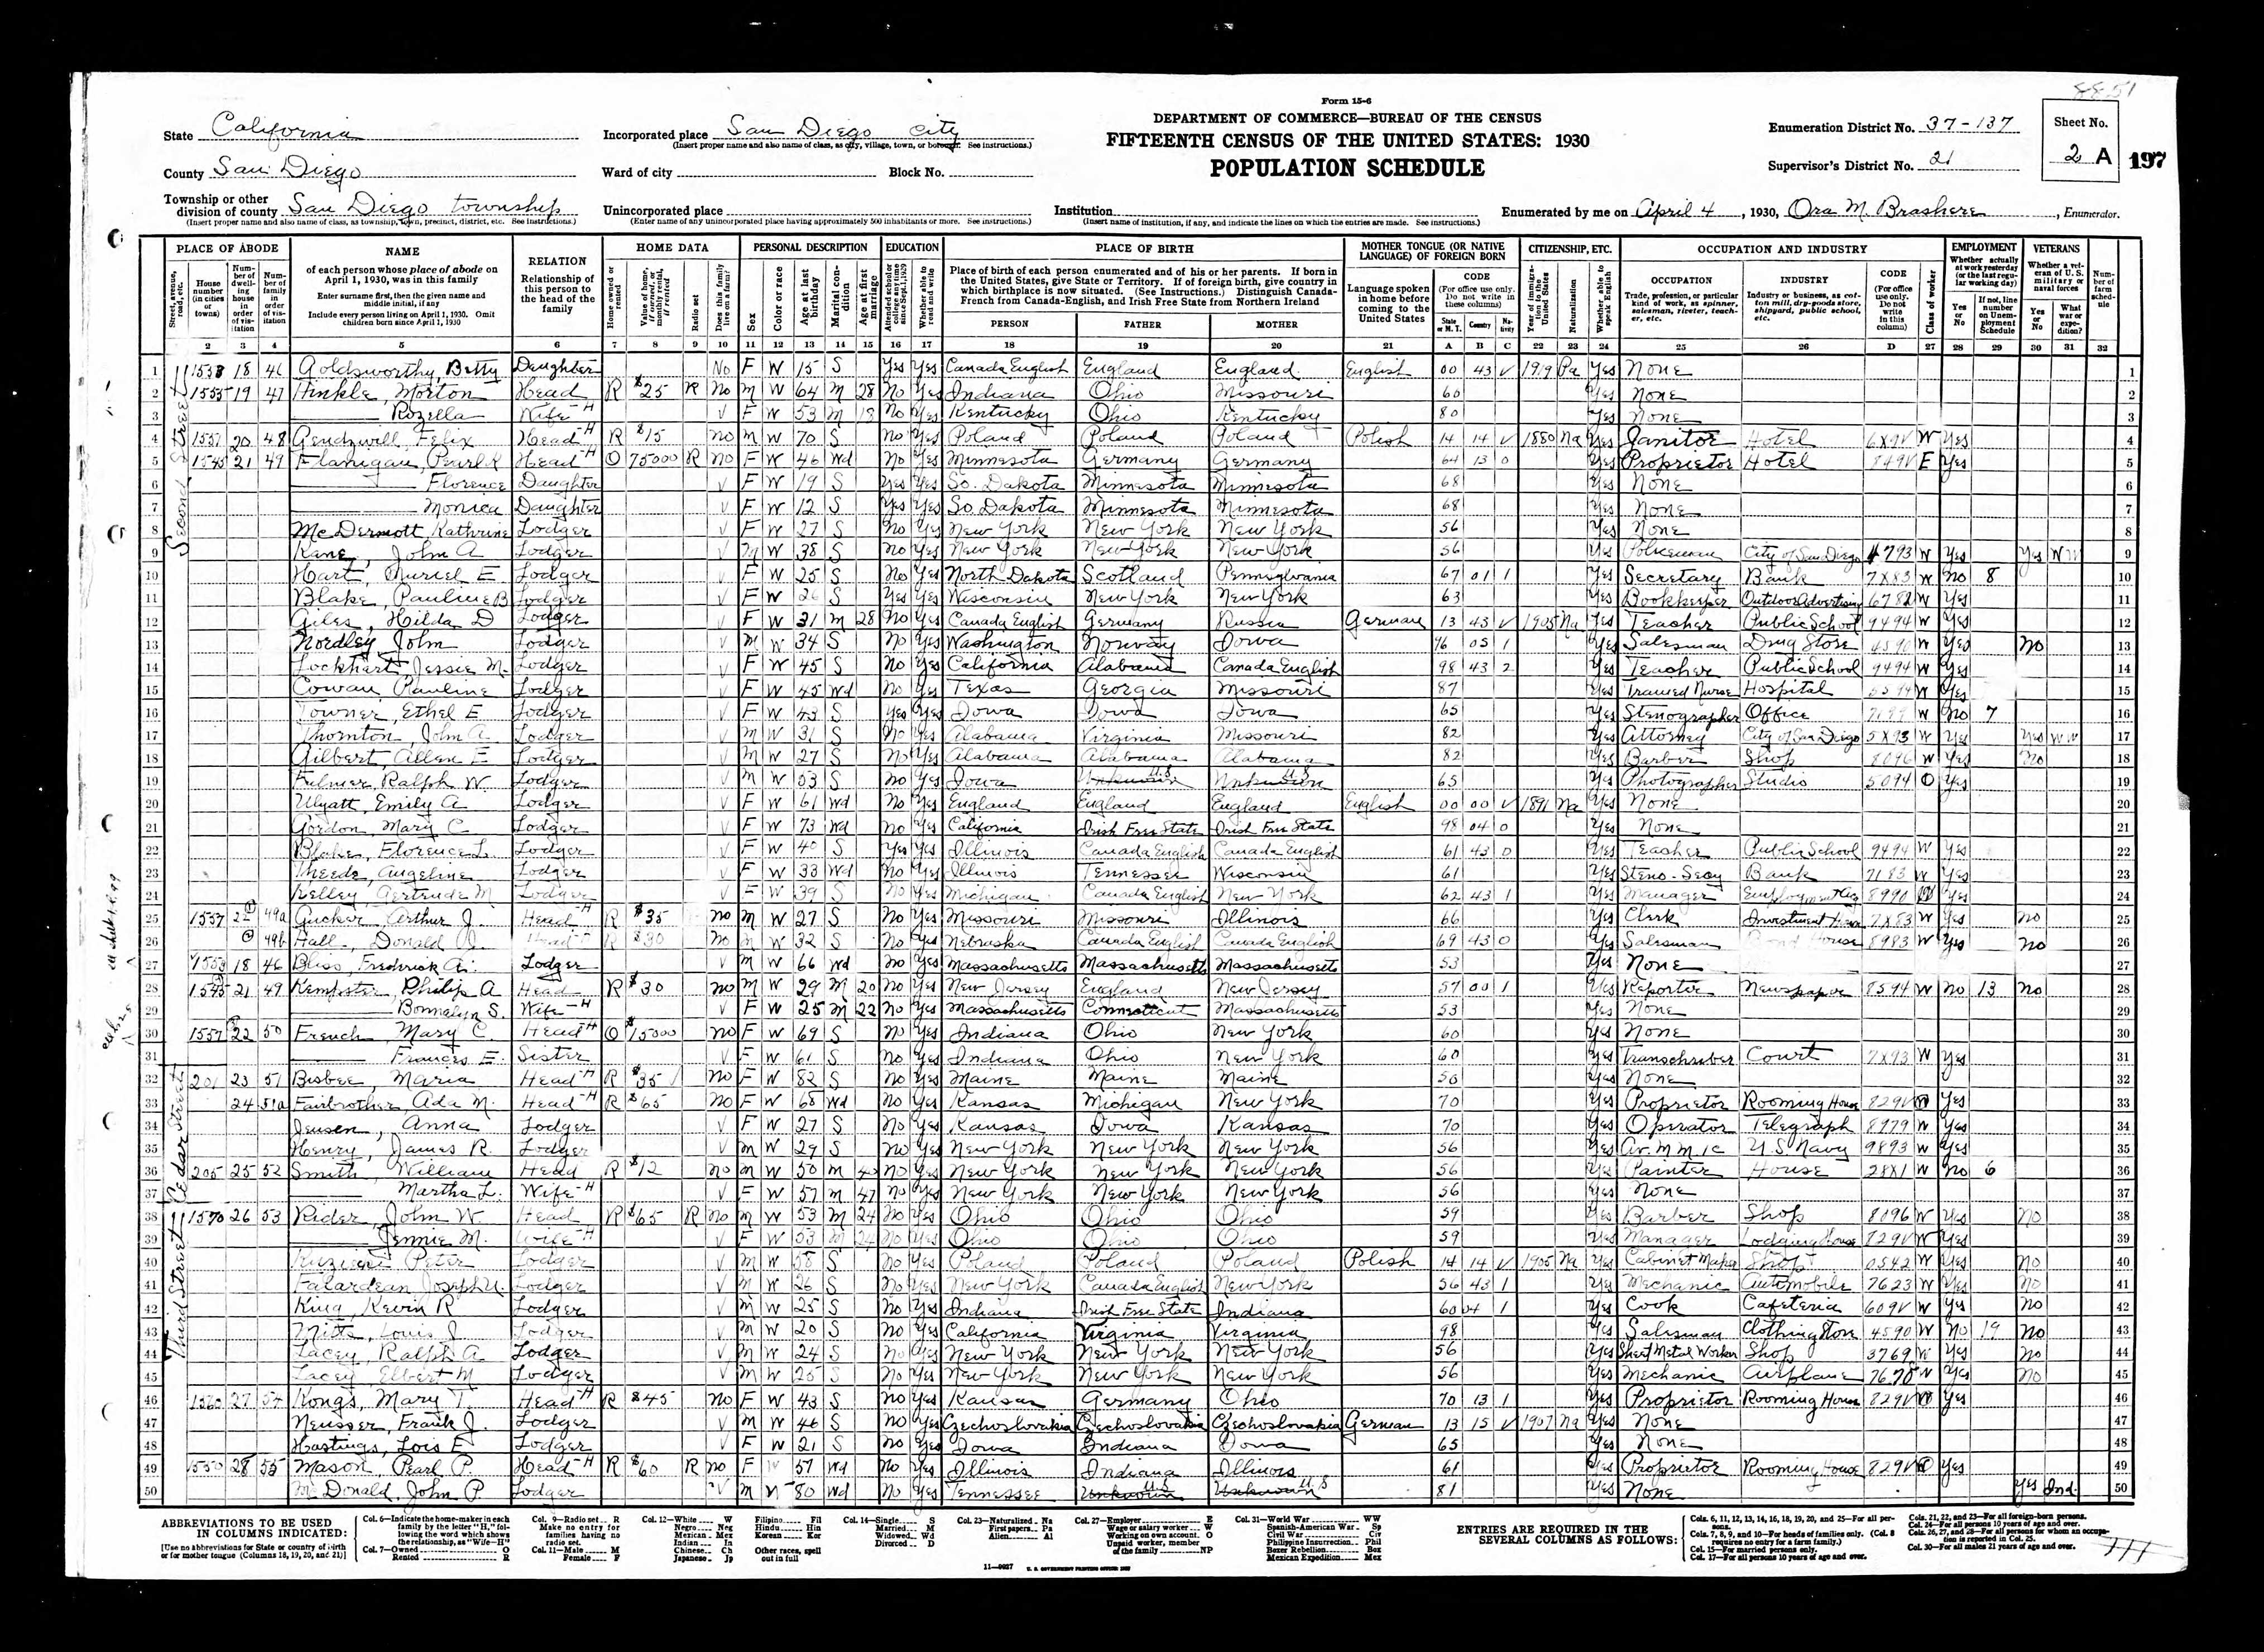 8851
Form 15-6
DEPARTMENT OF COMMERCE—BUREAU OF THE CENSUS
FIFTEENTH CENSUS OF THE UNITED STATES: 1930
POPULATION SCHEDULE
State California
County San Diego
Township or other division of county San Diego township
(Insert proper name and also name of class, as township, town, precinct, district, etc. See instructions.)
Incorporated place San Diego city
(Insert proper name and also name of class, as city, village, town, or borough. See instructions.)
Ward of city Block No.
Unincorporated place
(Enter name of any unincorporated place having approximately 500 inhabitants or more. See instructions.)
Institution
(Insert name of institution, if any, and indicate the lines on which the entries are made. See instructions.)
Enumeration District No. 37-137
Supervisor's District No. 21
Sheet No.
2 A 197
Enumerated by me on April 4, 1930, Ora M. Brashere, Enumerator.
PLACE OF ABODE NAME RELATION HOME DATA PERSONAL DESCRIPTION EDUCATION PLACE OF BIRTH MOTHER TONGUE (OR NATIVE LANGUAGE) OF FOREIGN BORN CITIZENSHIP, ETC. OCCUPATION AND INDUSTRY EMPLOYMENT VETERANS
Second Street
1 1533 18 46 Goldsworthy, Betty Daughter No F W 15 S Yes Yes Canada English England England English 00 43 V 1919 Pa Yes None
2 1555 19 47 Hinkle, Morton Head R $25 R No M W 64 M 28 No Yes Indiana Ohio Missouri 60 Yes None
3 Rozella Wife-H V F W 53 M 18 No Yes Kentucky Ohio Kentucky 80 Yes None
4 1551 20 48 Gendzwill Felix Head-H R $15 No M W 70 S No Yes Poland Poland Poland Polish 14 14 V 1880 Na Yes Janitor Hotel W Yes
5 1545 21 49 Flanigan, Pearl R Head-H O 75000 R No F W 46 Wd No Yes Minnesota Germany Germany 64 13 0 Yes Proprietor Hotel 849V E Yes
6 Florence Daughter V F W 19 S Yes Yes So. Dakota Minnesota Minnesota 68 Yes None
7 Monica Daughter V F W 12 S Yes Yes So Dakota Minnesota Minnesota 68 Yes None
8 McDermott, Kathrine Lodger V F W 27 S No Yes New York New York New York 56 Yes None
9 Kane, John A Lodger M W 38 S No Yes New York New York New York 56 Yes Policeman City of San Diego 4793 W Yes Yes WW
10 Hart, Muriel E Lodger V F W 25 S No Yes North Dakota Scotland Pennsylvania 67 01 1 Yes Secretary Bank 7X83 W No 8
11 Blake, Pauline B Lodger V F W 26 S Yes Yes Wisconsin New York New York 63 Yes Bookkeeper Outdoor Advertising 6782 W Yes
12 Giles, Hilda D Lodger V F W 31 M 28 No Yes Canada English Germany Russia German 13 43 V 1905 Na Yes Teacher Public School 9494 W Yes
13 Nordley John Lodger V M W 34 S No Yes Washington Norway Iowa 96 05 1 Yes Salesman Drug Store 4590 W Yes No
14 Lockhart Jessie M. Lodger V F W 45 S No Yes California Alabama Canada English 98 43 2 Yes Teacher Public School 9494 W Yes
15 Cowan Pauline Lodger V F W 45 Wd No Yes Texas Georgia Missouri 87 Yes Trained Nurse Hospital W Yes
16 Towner, Ethel E Lodger V F W 43 S Yes Yes Iowa Iowa Iowa 65 Yes Stenographer Office W No 7
17 Thornton, John A. Lodger V M W 31 S No Yes Alabama Virginia Missouri 82 Yes Attorney City of San Diego 5X93 W Yes Yes WW
18 Gilbert, Allen E Lodger V M W 27 S No Yes Alabama Alabama Alabama 82 Yes Barber Shop 8096 W Yes No
19 Fulmer Ralph W. Lodger V M W 53 S No Yes Iowa Unknown U.S Unknown U.S 65 Yes Photographer Studio 5094 O Yes
20 Wyatt, Emily A Lodger V F W 61 Wd No Yes England England England English 00 00 V 1891 Na Yes None
21 Gordon, Mary C Lodger V F W 73 Wd No Yes California Irish Free State Irish Free State 98 04 0 Yes None
22 Blake, Florence L. Lodger V F W 40 S Yes Yes Illinois Canada English Canada English 61 43 0 Yes Teacher Public School 9494 W Yes
23 Angeline Lodger V F W 33 Wd No Yes Illinois Tennessee Wisconsin 61 Yes Steno-Secy Bank 7183 W Yes
24 Kelley Gertrude M Lodger V F W 39 S No Yes Michigan Canada English New York 62 43 1 Yes Manager Employment 8990 Yes
25 1557 22 49a Arthur J. Head-H R $35 No M W 27 S No Yes Missouri Missouri Illinois 66 Yes Clerk Investment House 7X83 W Yes No
26 49b Hall, Donald Head R $30 No M W 32 S No Yes Nebraska Canada English Canada English 69 43 0 Yes Salesman Bond House 8983 W Yes No
27 1553 18 46 Bliss, Frederick A. Lodger V M W 66 Wd No Yes Massachusetts Massachusetts Massachusetts 53 Yes None
28 1545 21 49 Kempster, Philip A Head R $30 No M W 29 M 20 No Yes New Jersey England New Jersey 57 00 1 Yes Reporter Newspaper 8594 W No 13 No
29 Bonnelyn S. Wife-H V F W 25 M 22 No Yes Massachusetts Connecticut Massachusetts 53 Yes None
30 1557 22 50 French, Mary C. Head-H O $15000 No F W 69 S No Yes Indiana Ohio New York 60 Yes None
31 Frances E. Sister V F W 61 S No Yes Indiana Ohio New York 60 Yes Transchriber Court 7X93 W Yes
Cedar Street
32 201 23 51 Bisbee, Maria Head-H R $35 No F W 82 S No Yes Maine Maine Maine 50 Yes None
33 24 51a Fairbrother Ada M. Head-H R $65 No F W 68 Wd No Yes Kansas Michigan New York 70 Yes Proprietor Rooming House 829V Yes
34 Jensen, Anna Lodger V F W 27 S No Yes Kansas Iowa Kansas 70 Yes Operator Telegraph 8979 W Yes
35 Henry, James R. Lodger V M W 29 S No Yes New York New York New York 56 Yes Av. M M 1c U.S Navy 9893 W Yes
36 205 25 52 Smith William Head R $12 No M W 50 M 40 No Yes New York New York New York 56 Yes Painter House 28X1 W No 6
37 Martha L. Wife-H V F W 57 M 47 No Yes New York New York New York 56 Yes None
Third Street
38 1570 26 53 Rider, John W Head R $65 R No M W 53 M 24 No Yes Ohio Ohio Ohio 59 Yes Barber Shop 8096 W Yes No
39 Jennie M. Wife-H V F W 53 M 24 No Yes Ohio Ohio Ohio 59 Yes Manager Lodging House 829V W Yes
40 Peter Lodger V M W 58 S No Yes Poland Poland Poland Polish 14 14 V 1905 Na Yes Cabinet Maker Shop 0542 W Yes No
41 Falardeau Joseph U. Lodger V M W 26 S No Yes New York Canada English New York 56 43 1 Yes Mechanic Automobile 7623 W Yes No
42 King, Kevin R Lodger V M W 25 S No Yes Indiana Irish Free State Indiana 60 04 1 Yes Cook Cafeteria 609V W Yes No
43 Mitts, Louis J Lodger V M W 20 S No Yes California Virginia Virginia 98 Yes Salesman Clothing Store 4590 W No 19 No
44 Lacey, Ralph A Lodger V M W 24 S No Yes New York New York New York 56 Yes Sheet Metal Worker Shop 3769 W Yes No
45 Lacey, Elbert M Lodger V M W 25 S No Yes New York New York New York 56 Yes Mechanic Airplane 7678 W Yes No
46 1560 27 54 Kongs, Mary T. Head-H R $45 No F W 43 S No Yes Kansas Germany Ohio 70 13 1 Yes Proprietor Rooming House 829V Yes
47 Neusser, Frank J. Lodger V M W 46 S No Yes Czechoslovakia Czechoslovakia Czechoslovakia German 13 15 V 1907 Na Yes None
48 Hastings, Lois E Lodger V F W 21 S No Yes Iowa Indiana Iowa 65 Yes None
49 1550 28 55 Mason, Pearl P. Head-H R $60 R No F W 57 Wd No Yes Illinois Indiana Illinois 61 Yes Proprietor Rooming House 829V O Yes
50 McDonald, John P. Lodger V M W 80 Wd No Yes Tennessee Unknown U.S Unknown U.S 81 Yes None Yes Ind.
ABBREVIATIONS TO BE USED IN COLUMNS INDICATED:
[Use no abbreviations for State or country of birth or for mother tongue (Columns 18, 19, 20, and 21)]
Col. 6—Indicate the home-maker in each family by the letter "H," following the word which shows the relationship, as "Wife—H"
Col. 7—Owned O
Rented R
Col. 9—Radio set R
Make no entry for families having no radio set.
Col. 11—Male M
Female F
Col. 12—White W
Negro Neg
Mexican Mex
Indian In
Chinese Ch
Japanese Jp
Filipino Fil
Hindu Hin
Korean Kor
Other races, spell out in full
Col. 14—Single S
Married M
Widowed Wd
Divorced D
Col. 23—Naturalized Na
First papers Pa
Alien Al
Col. 27—Employer E
Wage or salary worker W
Working on own account O
Unpaid worker, member of the family NP
Col. 31—World War WW
Spanish-American War Sp
Civil War Civ
Philippine Insurrection Phil
Boxer Rebellion Box
Mexican Expedition Mex
ENTRIES ARE REQUIRED IN THE SEVERAL COLUMNS AS FOLLOWS:
Cols. 6, 11, 12, 13, 14, 16, 18, 19, 20, and 25—For all persons.
Cols. 7, 8, 9, and 10—For heads of families only. (Col. 8 requires no entry for a farm family.)
Col. 15—For married persons only.
Col. 17—For all persons 10 years of age and over.
Cols. 21, 22, and 23—For all foreign-born persons.
Col. 24—For all persons 10 years of age and over.
Cols. 26, 27, and 28—For all persons for whom an occupation is reported in Col. 25.
Col. 30—For all males 21 years of age and over.
11—9027